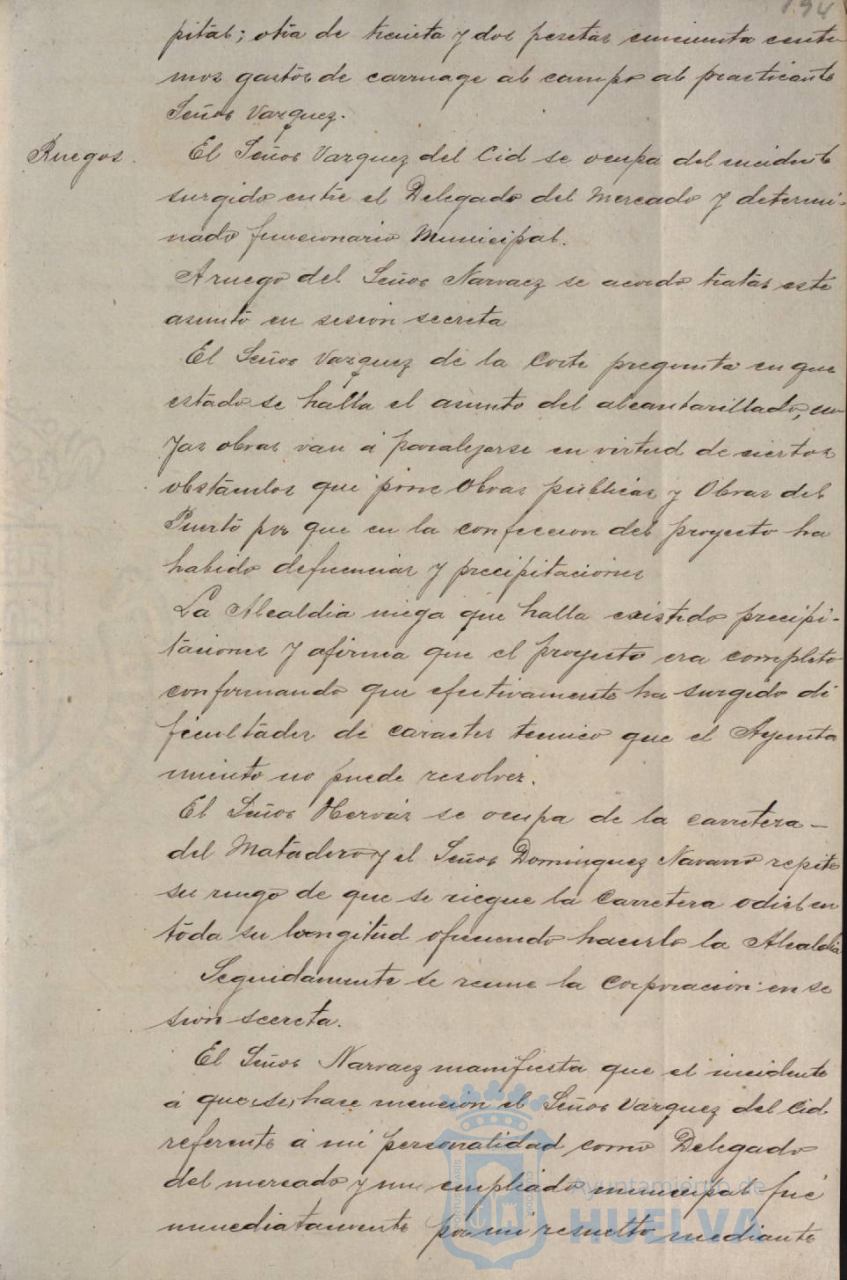 194
pital; otra de treinta y dos pesetas cincuenta centi
mos gastos de carruage al campo al practicante
Señor Vazquez.
Ruegos. El Señor Vazquez del Cid se ocupa del incidente
surgido entre el Delegado del Mercado y determi-
nado funcionario Municipal.
A ruego del Señor Narvaez se acordo tratar este
asunto en sesion secreta
El Señor Vazquez de la Corte pregunta en que
estado se halla el asunto del alcantarillado, cu
yas obras van á paralizarse en virtud de ciertos
obstáculos que pone Obras publicas y Obras del
Puerto por que en la confeccion del proyecto ha
habido deficiencias y precipitaciones
La Alcaldia niega que halla existido precipi-
taciones y afirma que el proyecto era completo
conformando que efectivamente ha surgido di
ficultades de caracter tecnico que el Ayunta
miento no puede resolver.
El Señor Hervás se ocupa de la carretera
del Matadero y el Señor Dominguez Navarro repite
su ruego de que se riegue la Carretera odiel en
toda su longitud ofreciendo hacerlo la Alcaldia
Seguidamente se reune la Corporacion en se
sion secreta.
El Señor Narvaez manifiesta que el incidente
a que se hace mencion el Señor Vazquez del Cid
referente á mi personalidad como Delegado
del mercado y un empleado municipal fué
inmediatamente por mi resuelto mediante
Ayuntamiento de
HUELVA